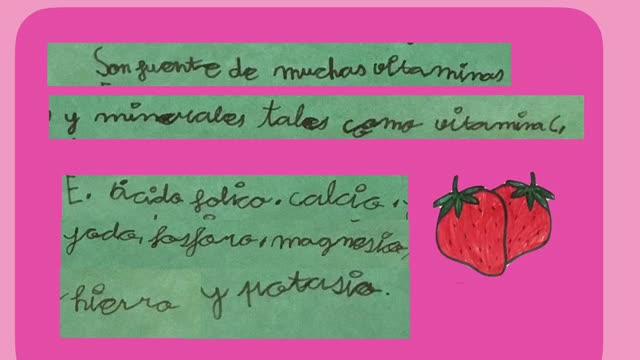 Son fuente de muchas vitaminas
y minerales tales como vitamina C,
E. ácido folico. calcio.
yodo, fosforo, magnesio,
hierro y potasio.